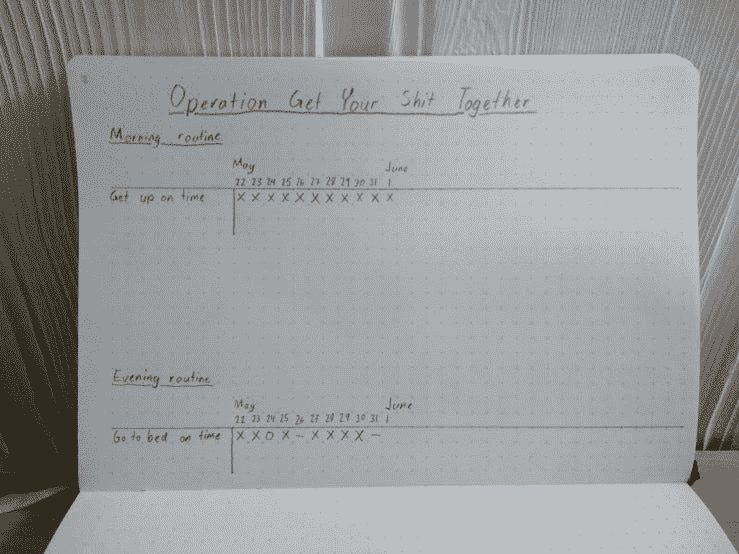 Operation Get Your Shit Together
Morning routine
May June
22 23 24 25 26 27 28 29 30 31 1
Get up on time X X X X X X X X X X X
Evening routine
May June
22 23 24 25 26 27 28 29 30 31 1
Go to bed on time X X O X – X X X X –